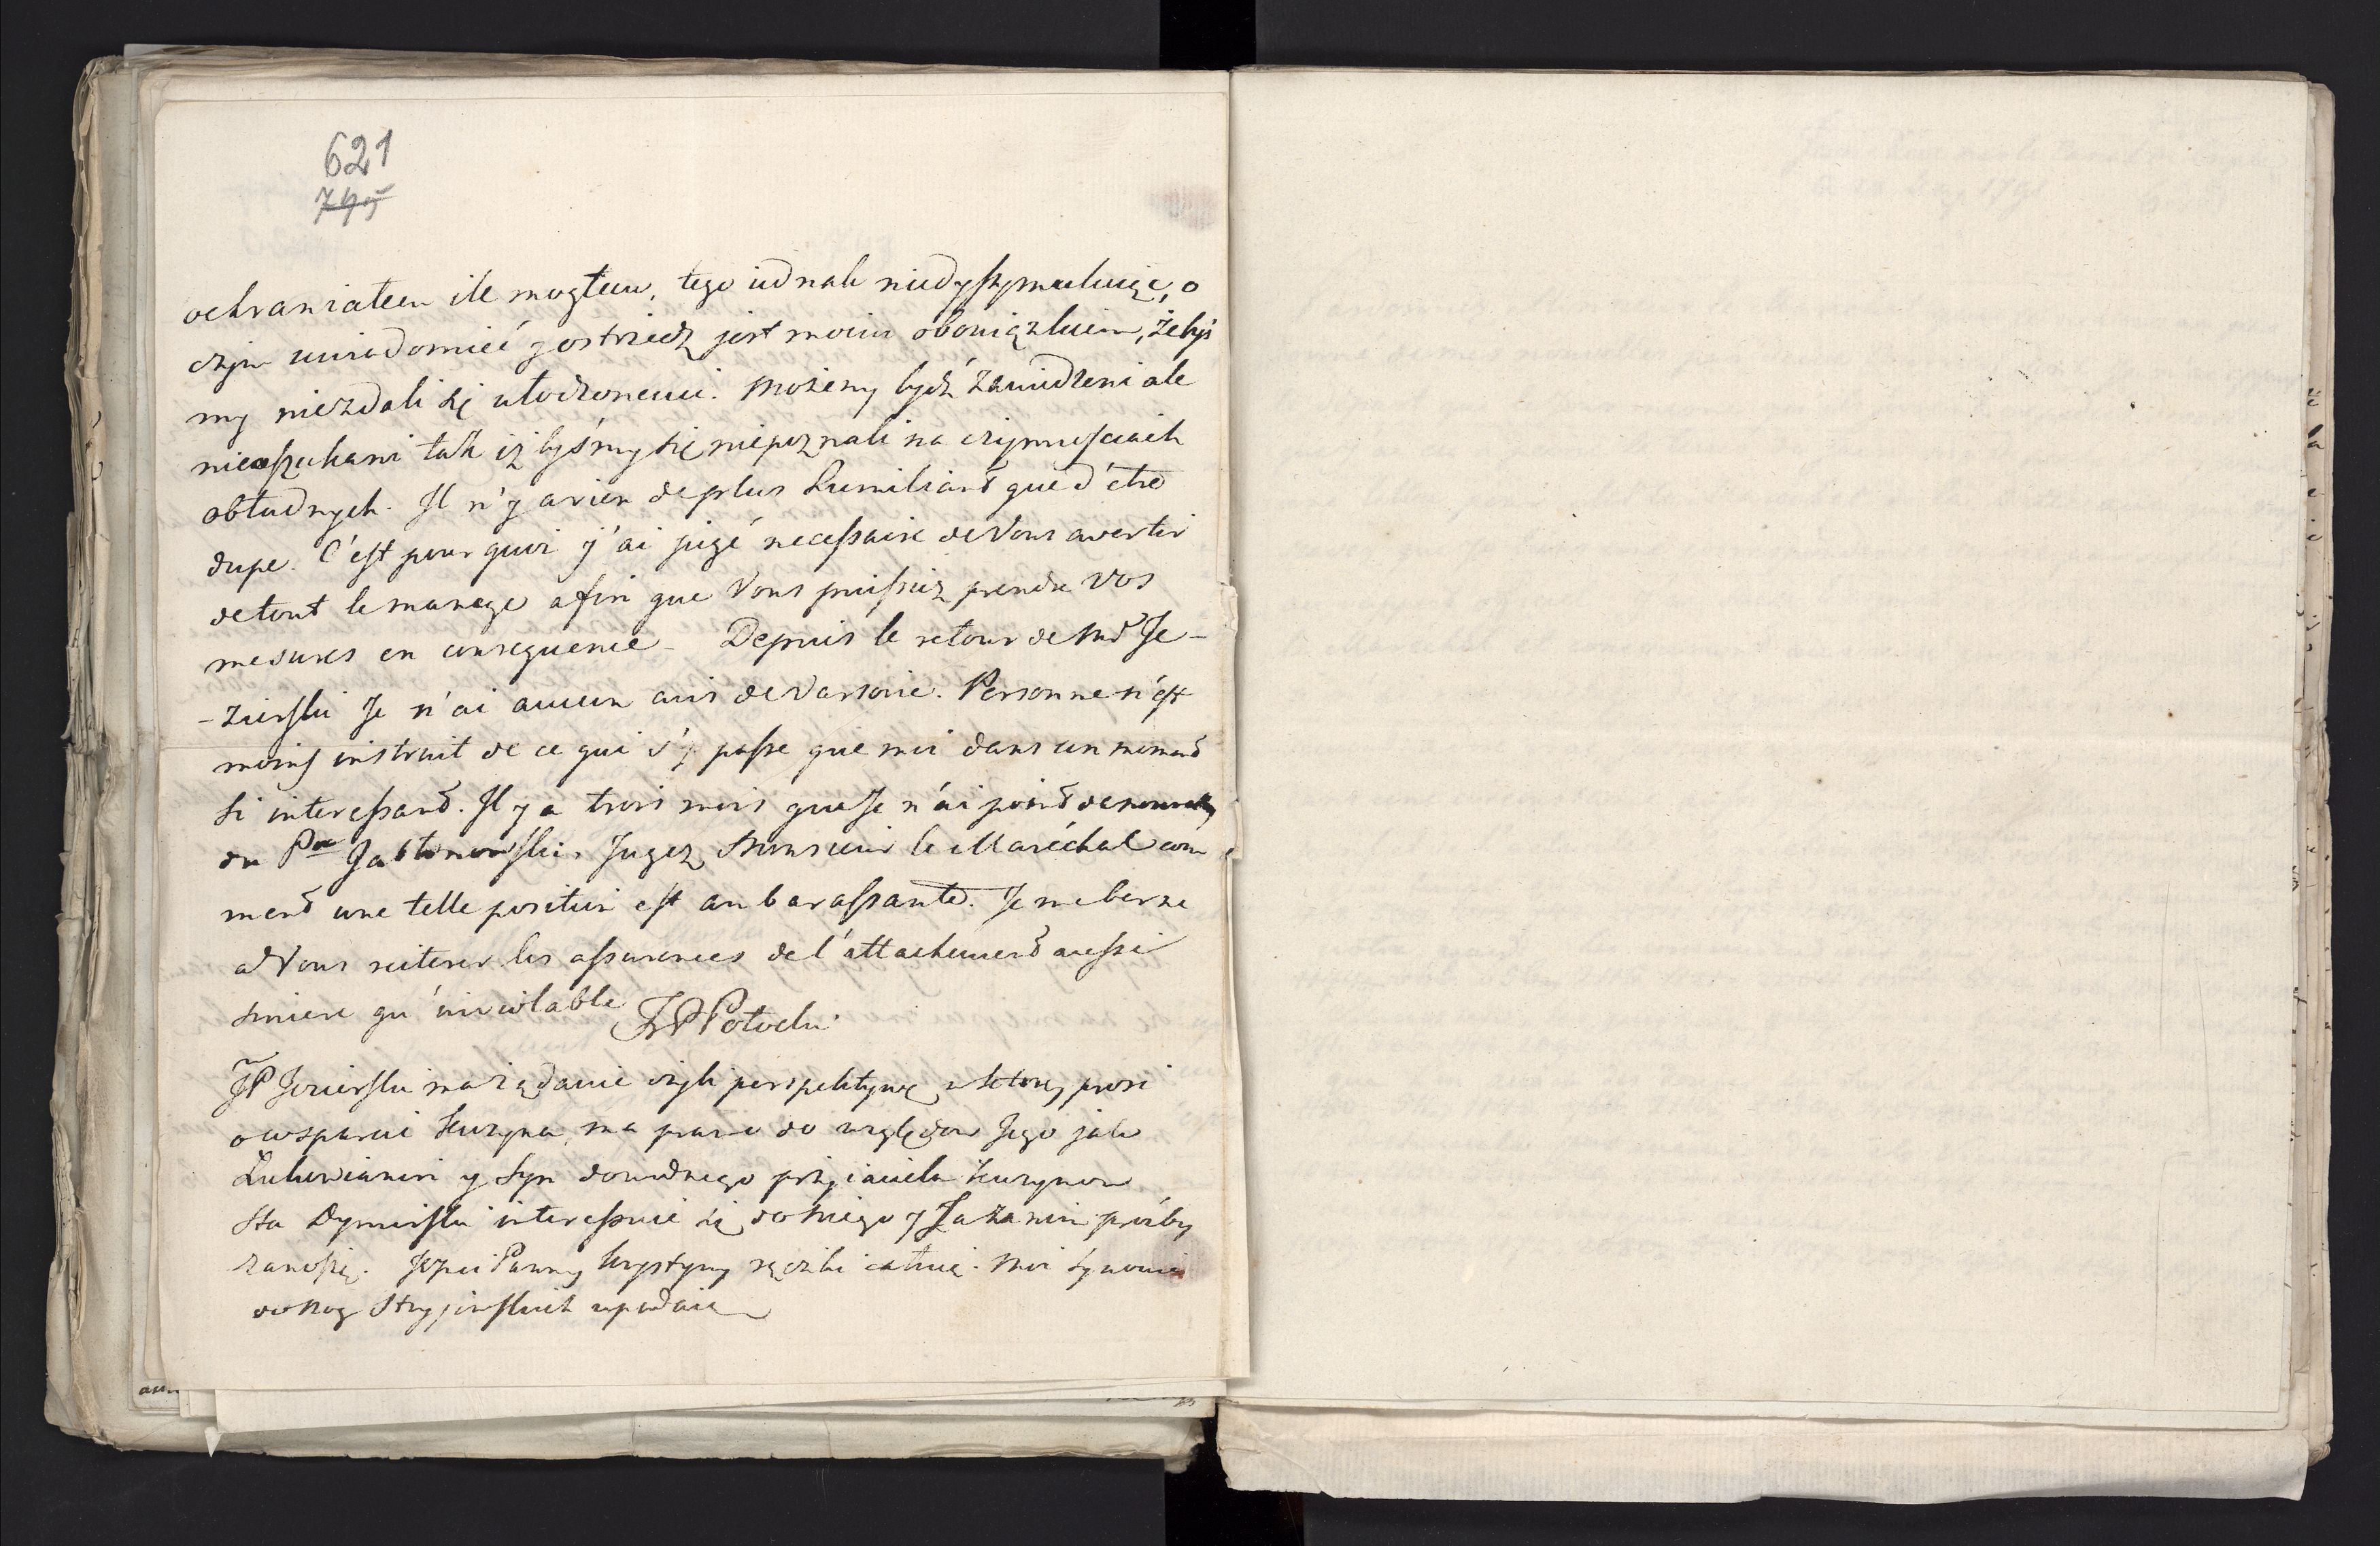 621
795
ochraniałem ile mogłem, tego iednak niedyssymuluiąc, o
czym uwiadomić y ostrzedz jest moim obowiązkiem, żebyś
my niezdali się ułowzonemi. Możemy bydź zawiedzeni ale
nieoszukani tak iż byśmy się niepoznali na czynnościach
obłudnych. Il n'y a rien de plus humiliant que d'être
dupe. C'est pour quoi j'ai jugé necessaire de Vous avertir
de tout le manege afin que Vous puissiez prendre vos
mesures en consequence – Depuis le retour de Mr Je-
-zierski Je n'ai aucun avis de Varsovie. Personne n'est
moins instruit de ce qui s'y passe que moi dans un moment
si interessant. Il y a trois mois que Je n'ai point de nouvelles
du Pce Jabłonowski. Jugez Monsieur le Maréchal com
ment une telle position est anbarassante. Je me borne
a Vous reiterer les assurances de l'attachement aussi
sincere qu'inviolable JPPotocki
JP Jezierski ma żądanie czyli perspektywę w ktorey prosi
o wsparcie Kuzyna, ma prawo do względow Jego jako
Lukowianin y Syn dowodnego przyiaciela Kuzynow
Ska Dymirski interessuie się do Niego y Ja za nim proźby
zanoszę. JWPani Panny Krystyny rączki całuię. Moi Synowie
do Nog Stryjowskich upadaią